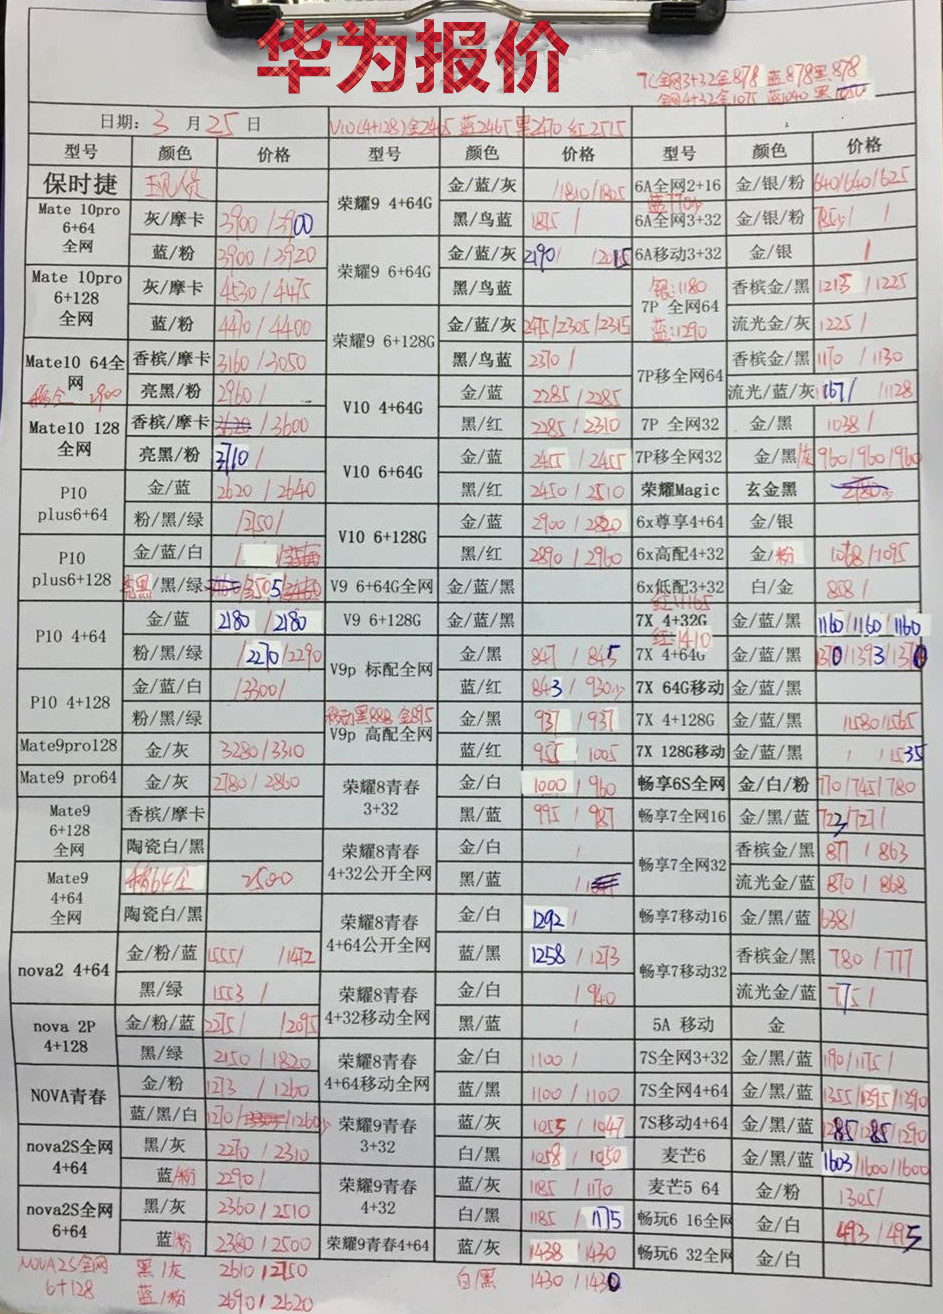 华为报价
7C全网3+32金878 蓝878黑878
全网4+32金1075 蓝1040 黑1050
日期: 3 月 25 日 V10(4+128)金2465 蓝2465黑2470 红2515
型号 颜色 价格 型号 颜色 价格 型号 颜色 价格
保时捷
Mate 10pro 6+64 全网 灰/摩卡 2900/2900
蓝/粉 2900/2920
Mate 10pro 6+128 全网 灰/摩卡 4530/4475
蓝/粉 4470/4400
Mate10 64全网 香槟/摩卡 3160/3050
2900 亮黑/粉 2960/
Mate10 128 全网 香槟/摩卡 /3600
亮黑/粉 3710/
P10 plus6+64 金/蓝 2620/2640
粉/黑/绿 /2150/
P10 plus6+128 金/蓝/白
/黑/绿
P10 4+64 金/蓝 2180/2180
粉/黑/绿 /2270/2290
P10 4+128 金/蓝/白 /3300/
粉/黑/绿
Mate9pro128 金/灰 3280/3310
Mate9 pro64 金/灰 2780/2860
Mate9 6+128 全网 香槟/摩卡
陶瓷白/黑
Mate9 4+64 全网 2500
陶瓷白/黑
nova2 4+64 金/粉/蓝 1555/ /1472
黑/绿 1553/
nova 2P 4+128 金/粉/蓝 2275/ /2095
黑/绿 2150/1820
NOVA青春 金/粉 1273/1260
蓝/黑/白 1270/
nova2S全网 4+64 黑/灰 2270/2310
蓝/粉 2290/
nova2S全网 6+64 黑/灰 2360/2510
蓝/粉 2380/2500
NOVA2S全网 6+128 黑/灰 2610/2750
蓝/粉 2690/2620
荣耀9 4+64G 金/蓝/灰 /1810/1805
黑/鸟蓝 1815/
荣耀9 6+64G 金/蓝/灰 2190/ /2015
黑/鸟蓝
荣耀9 6+128G 金/蓝/灰 /2305/2315
黑/鸟蓝 2370/
V10 4+64G 金/蓝 2285/2285
黑/红 2285/2310
V10 6+64G 金/蓝 2455/2455
黑/红 2450/2510
V10 6+128G 金/蓝 2900/2820
黑/红 2890/2960
V9 6+64G全网 金/蓝/黑
V9 6+128G 金/蓝/黑
V9p 标配全网 金/黑 847/845
蓝/红 843/930
移动黑888 金895
V9p 高配全网 金/黑 937/937
蓝/红 955/1005
荣耀8青春 3+32 金/白 1000/960
黑/蓝 995/987
荣耀8青春 4+32公开全网 金/白 /
黑/蓝
荣耀8青春 4+64公开全网 金/白 1292/
蓝/黑 1258/1273
荣耀8青春 4+32移动全网 金/白 /940
黑/蓝 /
荣耀8青春 4+64移动全网 金/白 1100/
蓝/黑 1100/1100
荣耀9青春 3+32 蓝/灰 1055/1047
白/黑 1058/1050
荣耀9青春 4+32 蓝/灰 1185/1170
白/黑 1185/1175
荣耀9青春4+64 蓝/灰 1438/1430
白/黑 1430/1430
6A全网2+16 金/银/粉 640/640/625
6A全网3+32 金/银/粉
6A移动3+32 金/银 /
银:1180
7P 全网64 香槟金/黑 1213/1225
蓝:1290 流光金/灰 1225/
7P移全网64 香槟金/黑 1170/1130
流光/蓝/灰 /1128
7P 全网32 金/黑 1038/
7P移全网32 金/黑/灰 960/960/960
荣耀Magic 玄金黑
6x尊享4+64 金/银
6x高配4+32 金/粉 1068/1095
6x低配3+32 白/金 868/
红:1165
7X 4+32G 金/蓝/黑 1160/1160/1160
红:1410
7X 4+64G 金/蓝/黑 1370/1393/1370
7X 64G移动 金/蓝/黑
7X 4+128G 金/蓝/黑 /1580/1565
7X 128G移动 金/蓝/黑 / /1535
畅享6S全网 金/白/粉 770/745/780
畅享7全网16 金/黑/蓝 723/727/
畅享7全网32 香槟金/黑 877/863
流光金/蓝 870/868
畅享7移动16 金/黑/蓝 638/
畅享7移动32 香槟金/黑 780/777
流光金/蓝 775/
5A 移动 金
7S全网3+32 金/黑/蓝 1190/1175/
7S全网4+64 金/黑/蓝 1355/1395/1390
7S移动4+64 金/黑/蓝 1285/1285/1290
麦芒6 金/黑/蓝 1603/1600/1600
麦芒5 64 金/粉 1305/
畅玩6 16全网 金/白 493/495
畅玩6 32全网 金/白